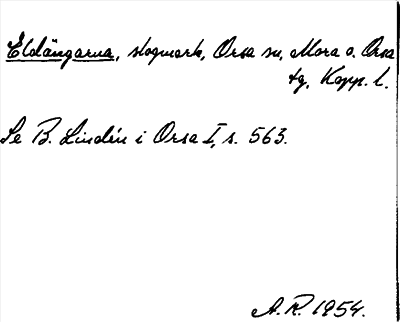 Eldängarna, skogmark, Orsa sn, Mora o. Orsa
tg, Kopp. l.
Se B. Lindén i Orsa I, s. 563.
A. R. 1954.